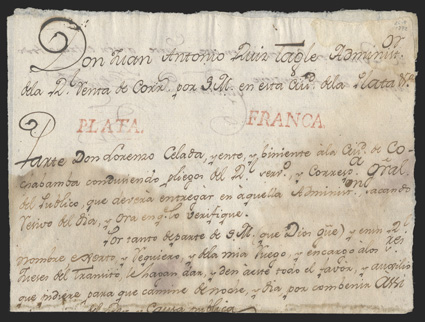 Don Juan Antonio Ruiz Tagle Adminis.or
dela Rl. Renta de Corr.s por S.M. en esta Ciu.d dela Plata &.a
PLATA. FRANCA
Parte Don Lorenzo Celada, yente, y viniente ala Ciu.d de Co-
chabamba conduciendo pliegos del Rl. serv.o, y Corresp.a gral.
del Publico, que deverá entregar en aquella Administ.on, sacando
Resivo del dia, y ora en q.e lo verifique.
Por tanto departe de S.M. que Dios güe) y en su Rl.
nombre exorto, y requiero, y dela mia ruego, y encargo alos S.res
Jueses del Transito le hagan dar, y den aeste todo el favor, y auxilio
que pidiere para que camine de noche, y dia, por combenir Assi
Causa publica